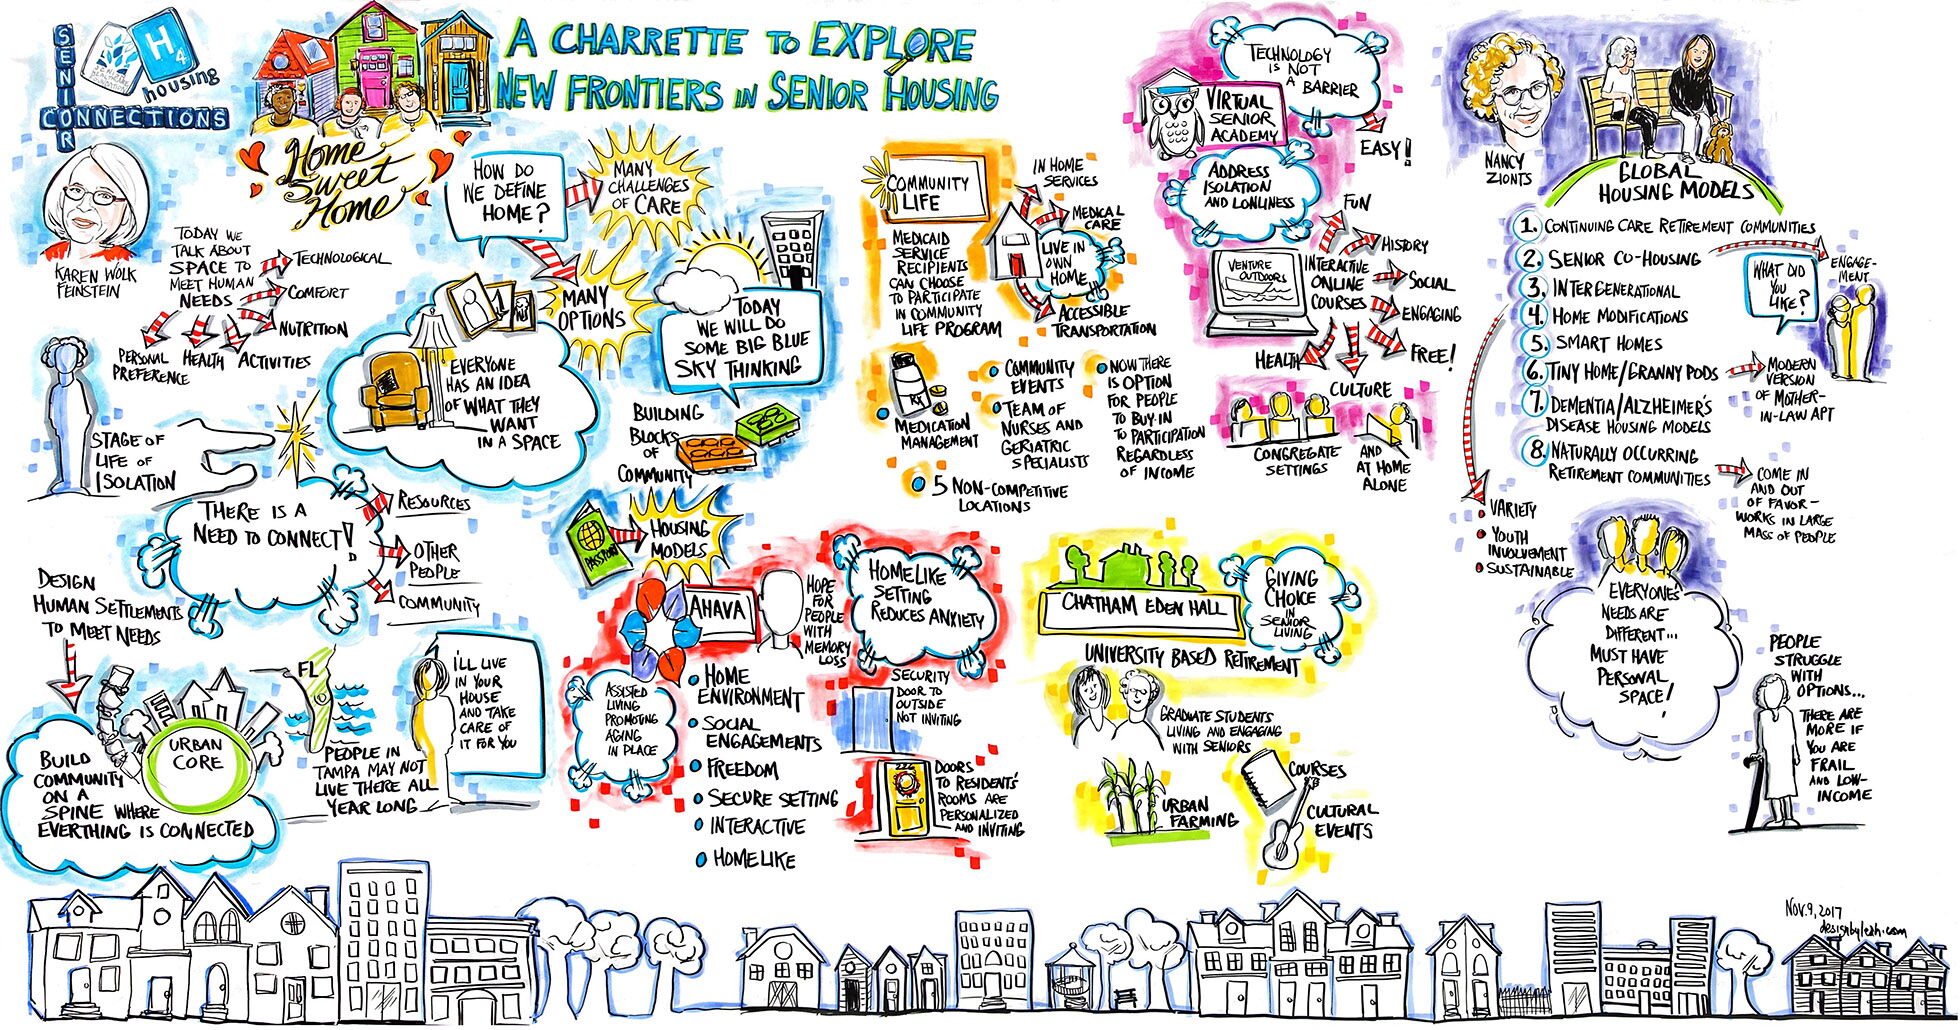 SENIOR
CONNECTIONS
H
4
housing
A CHARRETTE TO EXPLORE
NEW FRONTIERS IN SENIOR HOUSING
Home
Sweet
Home
KAREN WOLK
FEINSTEIN
TODAY WE
TALK ABOUT
SPACE TO
MEET HUMAN
NEEDS
TECHNOLOGICAL
COMFORT
NUTRITION
ACTIVITIES
HEALTH
PERSONAL
PREFERENCE
HOW DO
WE DEFINE
HOME?
MANY
CHALLENGES
OF CARE
MANY
OPTIONS
EVERYONE
HAS AN IDEA
OF WHAT THEY
WANT
IN A SPACE
TODAY
WE WILL DO
SOME BIG BLUE
SKY THINKING
BUILDING
BLOCKS
OF
COMMUNITY
PASSPORT
HOUSING
MODELS
STAGE OF
LIFE OF
ISOLATION
THERE IS A
NEED TO CONNECT!
RESOURCES
OTHER
PEOPLE
COMMUNITY
DESIGN
HUMAN SETTLEMENTS
TO MEET NEEDS
BUILD
COMMUNITY
ON A
SPINE WHERE
EVERTHING IS CONNECTED
URBAN
CORE
FL
PEOPLE IN
TAMPA MAY NOT
LIVE THERE ALL
YEAR LONG
I'LL LIVE
IN YOUR
HOUSE
AND TAKE
CARE OF
IT FOR YOU
COMMUNITY
LIFE
MEDICAID
SERVICE
RECIPIENTS
CAN CHOOSE
TO PARTICIPATE
IN COMMUNITY
LIFE PROGRAM
IN HOME
SERVICES
MEDICAL
CARE
LIVE IN
OWN
HOME
ACCESSIBLE
TRANSPORTATION
RX
MEDICATION
MANAGEMENT
COMMUNITY
EVENTS
TEAM OF
NURSES AND
GERIATRIC
SPECIALISTS
NOW THERE
IS OPTION
FOR PEOPLE
TO BUY-IN
TO PARTICIPATION
REGARDLESS
OF INCOME
5 NON-COMPETITIVE
LOCATIONS
AHAVA
HOPE
FOR
PEOPLE
WITH
MEMORY
LOSS
HOMELIKE
SETTING
REDUCES ANXIETY
ASSISTED
LIVING
PROMOTING
AGING
IN PLACE
HOME
ENVIRONMENT
SOCIAL
ENGAGEMENTS
FREEDOM
SECURE SETTING
INTERACTIVE
HOMELIKE
SECURITY
DOOR TO
OUTSIDE
NOT INVITING
226
DOORS
TO RESIDENTS'
ROOMS ARE
PERSONALIZED
AND INVITING
TECHNOLOGY
IS NOT
A
BARRIER
EASY!
VIRTUAL
SENIOR
ACADEMY
ADDRESS
ISOLATION
AND LONLINESS
VENTURE
OUTDOORS
INTERACTIVE
ONLINE
COURSES
FUN
HISTORY
SOCIAL
ENGAGING
FREE!
CULTURE
HEALTH
CONGREGATE
SETTINGS
AND
AT HOME
ALONE
CHATHAM EDEN HALL
GIVING
CHOICE
IN
SENIOR
LIVING
UNIVERSITY BASED RETIREMENT
GRADUATE STUDENTS
LIVING AND ENGAGING
WITH SENIORS
URBAN
FARMING
COURSES
CULTURAL
EVENTS
NANCY
ZIONTS
GLOBAL
HOUSING MODELS
1. CONTINUING CARE RETIREMENT COMMUNITIES
2. SENIOR CO-HOUSING
3. INTERGENERATIONAL
4. HOME MODIFICATIONS
5. SMART HOMES
6. TINY HOME/GRANNY PODS
7. DEMENTIA/ALZHEIMER'S
DISEASE HOUSING MODELS
8. NATURALLY OCCURRING
RETIREMENT COMMUNITIES
ENGAGE-
MENT
WHAT DID
YOU
LIKE?
MODERN
VERSION
OF MOTHER-
IN-LAW APT
COME IN
AND OUT
OF FAVOR -
WORKS IN LARGE
MASS OF PEOPLE
VARIETY
YOUTH
INVOLVEMENT
SUSTAINABLE
EVERYONES
NEEDS ARE
DIFFERENT...
MUST HAVE
PERSONAL
SPACE!
PEOPLE
STRUGGLE
WITH
OPTIONS...
THERE ARE
MORE IF
YOU ARE
FRAIL
AND LOW-
INCOME
NOV. 9, 2017
designbyleah.com